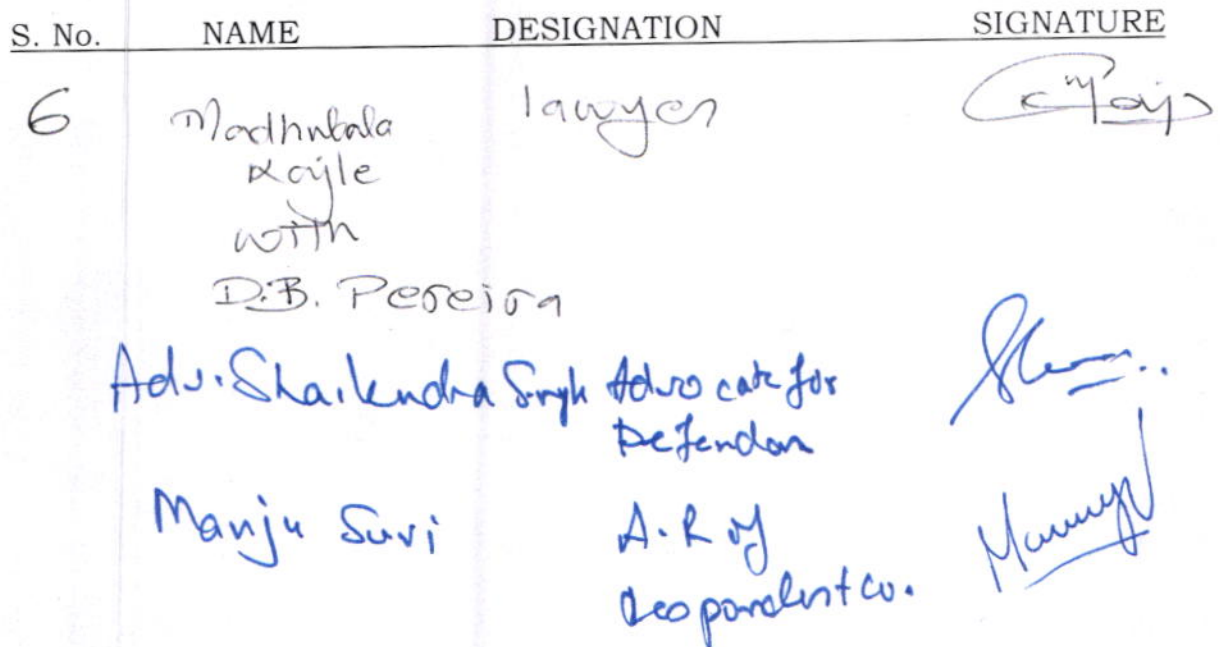 S. No. NAME DESIGNATION SIGNATURE
6 Madhubala lawyer
Kajle
with
D.B. Pereira
Adv. Shailendra Singh Advocate for
Defendan
Manju Suri A.R of
Respondent co.